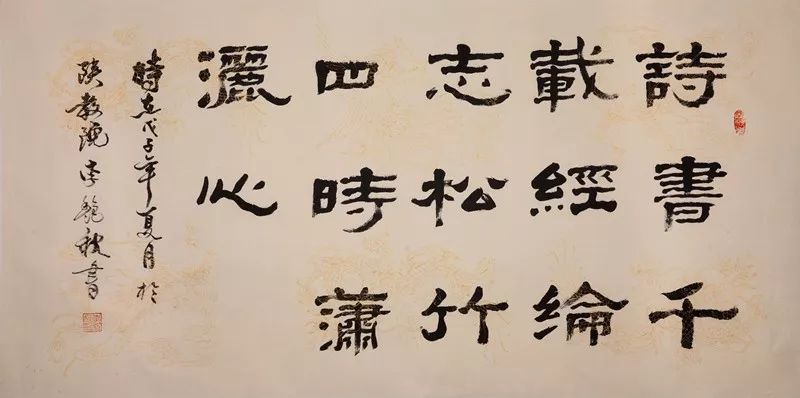 詩書千
載經綸
志松竹
四時瀟
灑心
時在戊子年夏月於
陝教院
書